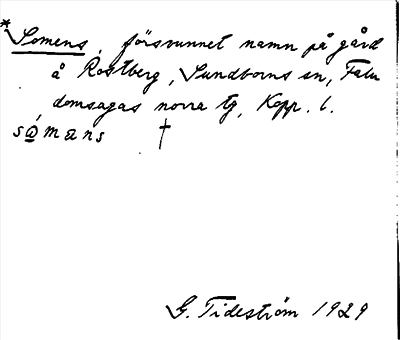 *Somens, försvunnet namn på gård
å Rostberg, Sundborns sn, Falu
domsagas norra tg, Kopp. l.
såmans †
G. Tideström 1929